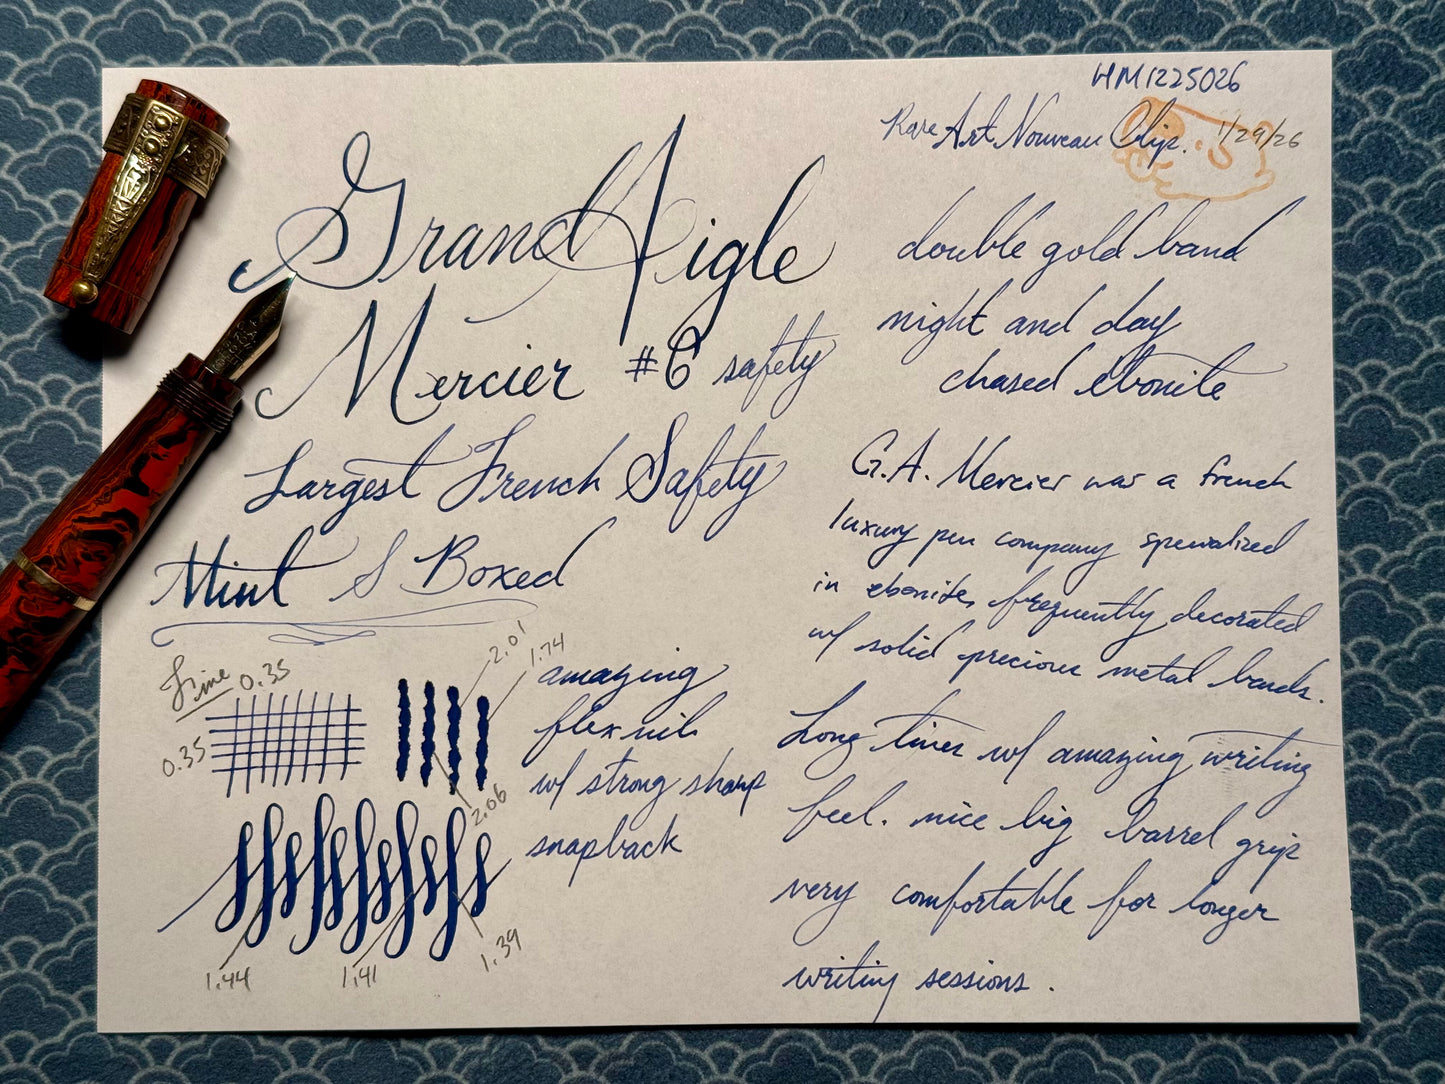 HM1225026
Rare Art Nouveau Clip. 1/29/26
Grand Aigle
Mercier #6 safety
Largest French Safety
Mint & Boxed
double gold band
night and day
chased ebonite
G.A. Mercier was a french
luxury pen company
in ebonite, frequently decorated
w/ solid precious metal bands.
Long tines w/ amazing writing
feel. nice big barrel grip
very comfortable for longer
writing sessions.
Fine 0.35
0.35
2.01
1.74
2.06
1.44
1.41
1.39
amazing
flex nib
w/ strong sharp
snapback